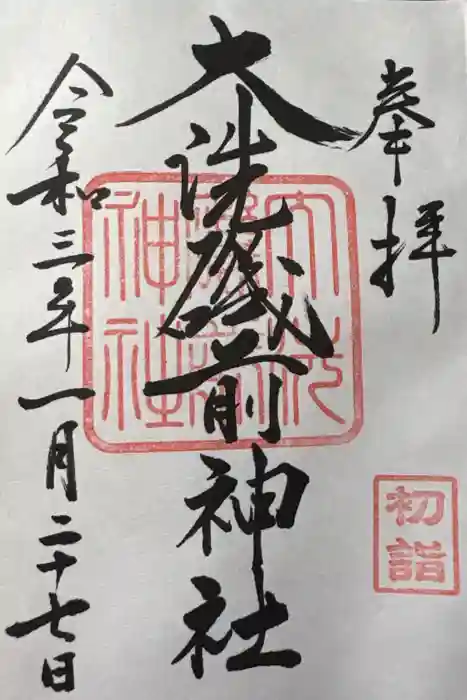 奉拝
初詣
大洗磯前神社
大洗磯前神社
令和三年一月二十七日